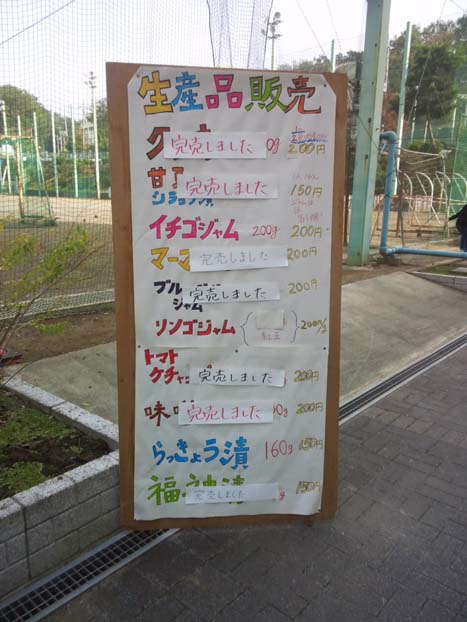 生産品販売
完売しました 200円
甘 完売しました 150円
シラップ漬
イチゴジャム 200g 200円
マー 完売しました 200円
ブル ジャム 完売しました 200円
リンゴジャム 紅玉 200円
トマトケチャ 完売しました 200円
味 完売しました 200円
らっきょう漬 160g 150円
福神漬 完売しました g 150円